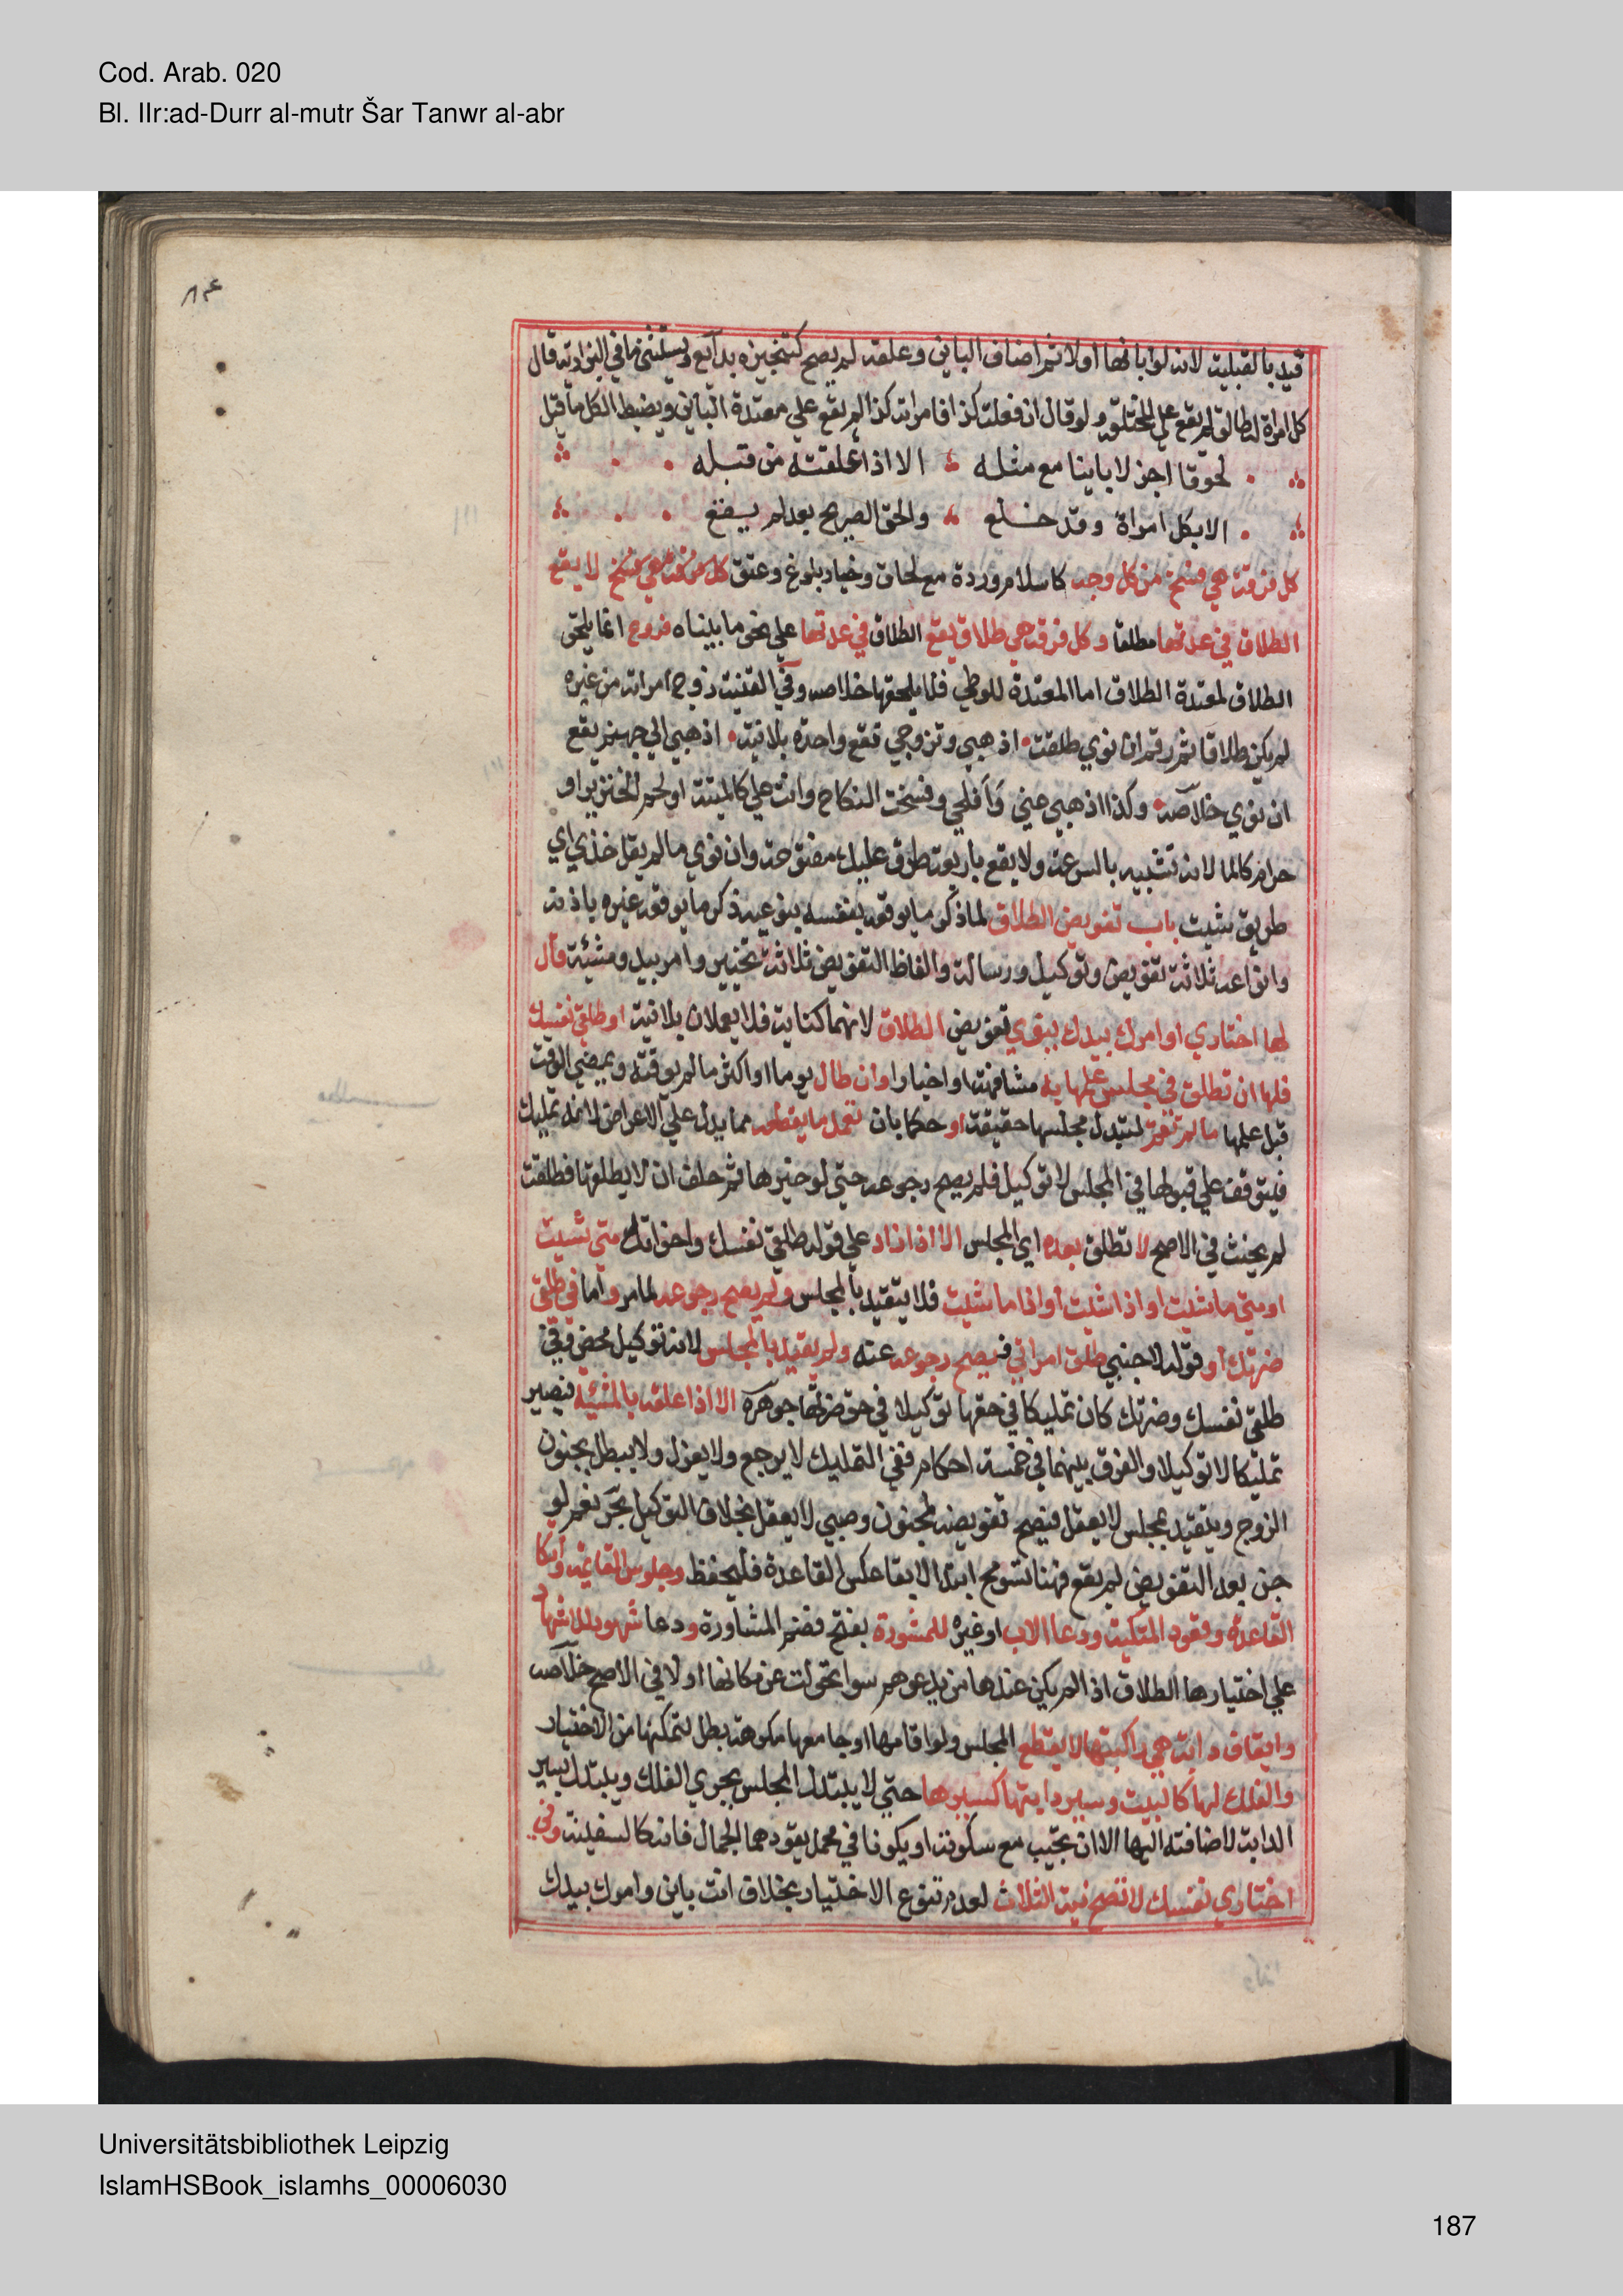 Cod. Arab. 020
Bl. IIr:ad-Durr al-mutr Šar Tanwr al-abr
قيد بالقبلية لانه لو ابانها اولا ثم اضاف الباين وعلقه لم يصح كتنجيزه بدائع ويستثنى ما في البزازية قال
كل امراة له طالق لم يقع على المختلعة ولو قال ان فعلت كذا فامراته كذا لم يقع على معتدة الباين ويضبط الكل ما قيل
لحوقا اجز لا باينا مع مثله الا اذا علقته من قبله
الا بكل امراة وقد خلع والحق الصريح بعد لم يقع
كل فرقة هي فسخ من كل وجه كاسلام وردة مع لحاق وخيار بلوغ وعتق كل فرقة هي فسخ لا يقع
الطلاق في عدتها مطلقا وكل فرقة هي طلاق يقع الطلاق في عدتها على نحو ما بيناه فروع انما يلحق
الطلاق لمعتدة الطلاق اما المعتدة للوطي فلا يلحقها خلاصه وفي القنية زوج امراته من غيره
لم يكن طلاقا ثم رقم ان نوي طلقت اذهبي وتزوجي تقع واحدة بلا نية اذهبي الي جهنم يقع
ان نوي خلاصه وكذا اذهبي عني وافلحي وفسخت النكاح وانت علي كالميتة او لحم الخنزير او
حرام كالما لانه تشبيه بالسرعة ولا يقع باربعة طرق عليك مفتوحة وان نوي ما لم يقل خذي اي
طريق شيت باب تفويض الطلاق لما ذكر ما يوقعه بنفسه بنوعيه ذكر ما يوقعه غيره باذنه
وانواعه ثلاثة تفويض وتوكيل ورسالة والفاظ التفويض ثلاثة تخيير وامر بيد ومشيئة قال
لها اختاري او امرك بيدك ينوي تفويض الطلاق لانهما كناية فلا يعملان بلا نية او طلقي نفسك
فلها ان تطلق في مجلس علمها به مشافهة او اخبارا وان طال يوما او اكثر ما لم يوقته ويمضي الوقت
قبل علمها ما لم تقم لتبدل مجلسها حقيقة او حكما بان تعمل ما يقطعه مما يدل علي الاعراض لانه تمليك
فيتوقف علي قبولها في المجلس لا توكيل فلم يصح رجوعه حتي لو خيرها ثم حلف ان لا يطلقها فطلقت
لم يحنث في الاصح لا تطلق بعده اي المجلس الا اذا زاد علي قوله طلقي نفسك واخواته متي شيت
او متي ما شيت او اذا شيت او اذا ما شيت فلا يتقيد بالمجلس ولم يصح رجوعه لما مر واما في طلقي
ضرتك او قوله لاجنبي طلق امراتي فيصح رجوعه عنه ولم يقيد بالمجلس لانه توكيل محض وفي
طلقي نفسك وضرتك كان تمليكا في حقها توكيلا في حق ضرتها جوهرة الا اذا علقه بالمشيئة فيصير
تمليكا لا توكيلا والفرق بينهما في خمسة احكام ففي التمليك لا يرجع ولا يعزل ولا يبطل بجنون
الزوج ويتقيد بمجلس لا بعقل فيصح تفويضه لمجنون وصبي لا يعقل بخلاف التوكيل بحر نعم لو
جن بعد التفويض لم يقع فهنا تسومح ابتدا لا بقا عكس القاعدة فليحفظ وجلوس القايمة واتكا
القاعدة وقعود المتكية ودعا الاب او غيره للمشورة بفتح فضم المشاورة ودعا شهود للاشهاد
علي اختيارها الطلاق اذا لم يكن عندها من يدعوهم سوا تحولت عن مكانها او لا في الاصح خلاصه
وايقاف دابة هي راكبتها لا يقطع المجلس ولو اقامها او جامعها مكرهة بطل لتمكنها من الاختيار
والفلك لها كالبيت وسير دابتها كسيرها حتي لا يتبدل المجلس بجري الفلك ويتبدل بسير
الدابة لاضافته اليها الا ان تجيب مع سكوته او يكونا في محمل يقودهما الجمال فانه كالسفينة وفي
اختاري نفسك لا تصح نية الثلاث لعدم تنوع الاختيار بخلاف انت باين وامرك بيدك
Universitätsbibliothek Leipzig
IslamHSBook_islamhs_00006030
187